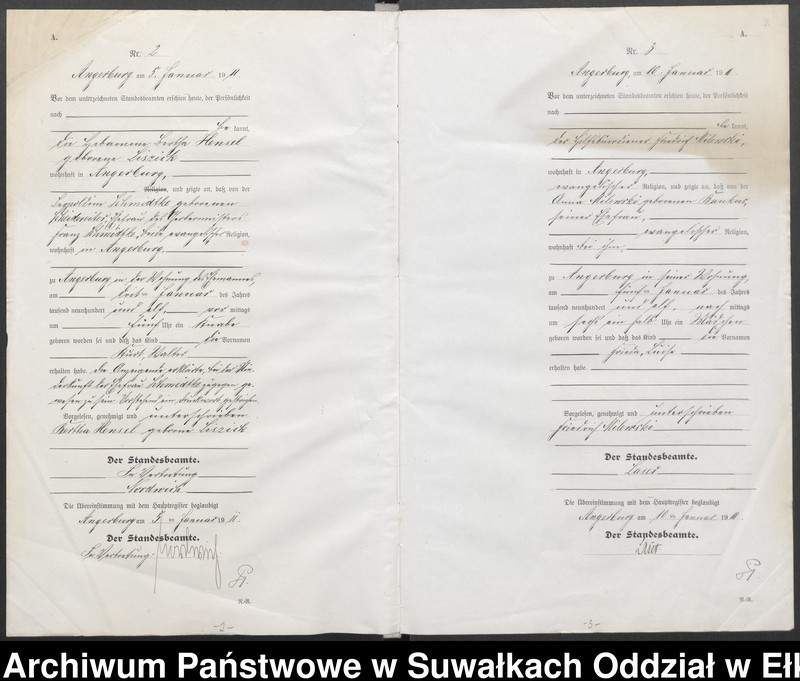 A.
Nr. 2
Angerburg am 5. Januar 1911.
Vor dem unterzeichneten Standesbeamten erschien heute, der Persönlichkeit
nach
be kannt,
die Hebamme Bertha Hensel
geborene Liszick
wohnhaft in Angerburg,
Religion, und zeigte an, daß von der
Schmodtke geborenen
Ehefrau des
Franz Schmodtke, beide evangelischer Religion,
wohnhaft in Angerburg,
zu Angerburg in der Wohnung des Ehemannes,
am Januar des Jahres
tausend neunhundert und elf, vor mittags
um fünf Uhr ein Knabe
geboren worden sei und daß das Kind die Vornamen
Kurt, Walter
erhalten habe. Die Anzeigende erklärte, bei der Nie-
derkunft der Ehefrau Schmodtke zugegen ge-
wesen zu sein. Vorstehend ein Druckwort gestrichen.
Vorgelesen, genehmigt und unterschrieben
Bertha Hensel geborene Liszick
Der Standesbeamte.
In Vertretung
Die Übereinstimmung mit dem Hauptregister beglaubigt
Angerburg am 5. Januar 1911.
Der Standesbeamte.
In Vertretung:
R.-R.
-2-
A.
Nr. 3
Angerburg, am 10. Januar 1911.
Vor dem unterzeichneten Standesbeamten erschien heute, der Persönlichkeit
nach
be kannt,
der Friedrich Milewski,
wohnhaft in Angerburg,
evangelischer Religion, und zeigte an, daß von der
Anna Milewski geborenen
seiner Ehefrau,
evangelischer Religion,
wohnhaft bei ihm,
zu Angerburg in seiner Wohnung,
am Januar des Jahres
tausend neunhundert und elf, nach mittags
um sechs ein halb Uhr ein Mädchen
geboren worden sei und daß das Kind die Vornamen
Frieda, Luise
erhalten habe
Vorgelesen, genehmigt und unterschrieben
Friedrich Milewski
Der Standesbeamte.
Die Übereinstimmung mit dem Hauptregister beglaubigt
Angerburg am 10. Januar 1911.
Der Standesbeamte.
R.-R.
-3-
Archiwum Państwowe w Suwałkach Oddział w Ełk